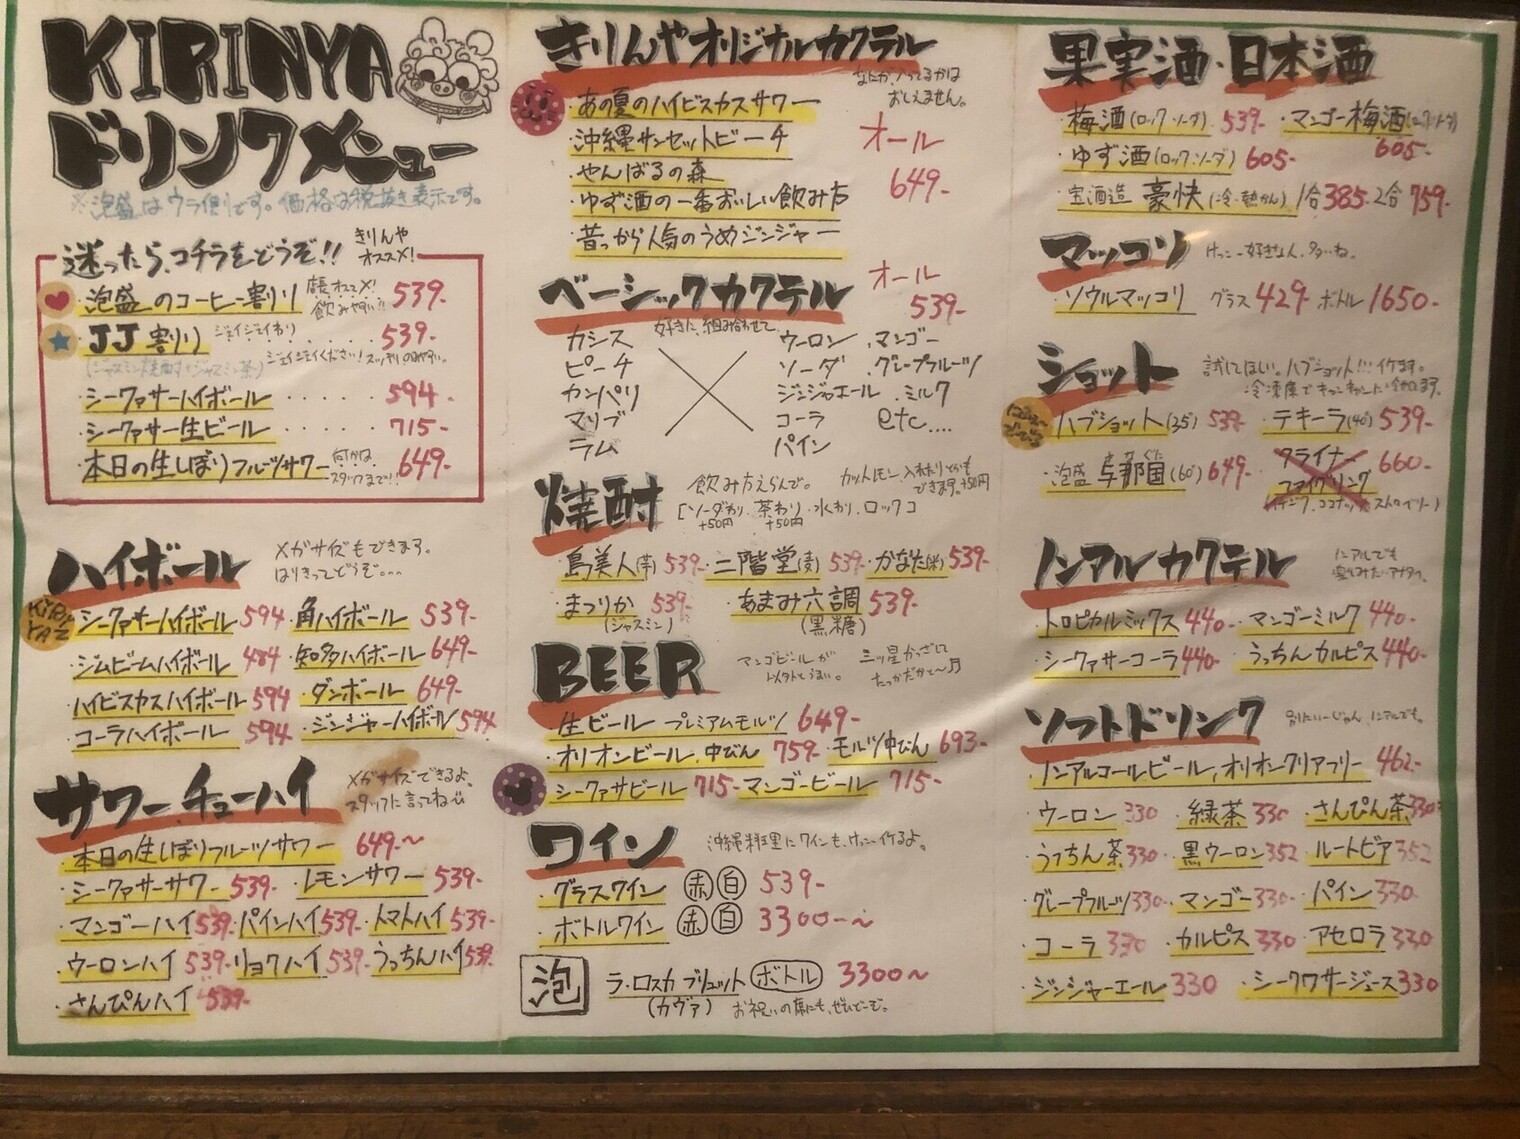 KIRINYA
ドリンクメニュー
※泡盛はウラ側です。価格は税抜き表示です。
迷ったら、コチラをどうぞ!!
きりんや
オススメ!
泡盛のコーヒー割り 店長オススメ! 飲みやすい!! 539-
JJ割り ジェイジェイわり 539-
(ジャスミン焼酎+ジャスミン茶) ジェイジェイください! スッキリのみやすい。
シークァサーハイボール ‥‥‥ 594-
シークァサー生ビール ‥‥‥ 715-
本日の生しぼりフルーツサワー 何かはスタッフまで!! 649-
ハイボール
メガサイズもできます。
はりきってどうぞ。...
・シークァサーハイボール 594 ・角ハイボール 539-
・ジムビームハイボール 484 ・知多ハイボール 649-
・ハイビスカスハイボール 594 ・ダンボール 649-
・コーラハイボール 594 ・ジンジャーハイボール 594
サワー・チューハイ
メガサイズできるよ。
スタッフに言ってね
・本日の生しぼりフルーツサワー 649-~
・シークァサーサワー 539- ・レモンサワー 539-
・マンゴーハイ 539- ・パインハイ 539- ・トマトハイ 539-
・ウーロンハイ 539- ・リョクハイ 539- ・うっちんハイ 539-
・さんぴんハイ 539-
きりんやオリジナルカクテル
なにが入ってるかは
おしえません。
・あの夏のハイビスカスサワー
・沖縄サンセットビーチ
・やんばるの森
・ゆず酒の一番おいしい飲み方
・昔っから人気のうめジンジャー
オール
649-
ベーシックカクテル
オール
539-
好きに、組み合わせて
カシス
ピーチ
カンパリ
マリブ
ラム
ウーロン ・マンゴー
ソーダ ・グレープフルーツ
ジンジャエール ・ミルク
コーラ etc....
パイン
焼酎
飲み方えらんで。
[ソーダわり・茶わり・水わり・ロックコ
+50円 +50円
カットレモン
できます。+50円
・島美人(芋) 539- ・二階堂(麦) 539- ・かなた(米) 539-
・まつりか 539- ・あまみ六調 539-
(ジャスミン) (黒糖)
BEER
マンゴビールが
以外とうまい。
・生ビール プレミアムモルツ 649-
・オリオンビール・中びん 759- ・モルツ中びん 693-
・シークァサビール 715- ・マンゴービール 715-
ワイン
沖縄料理にワインも、けっこーイケるよ。
・グラスワイン 赤 白 539-
・ボトルワイン 赤 白 3300-~
泡
ラ・ロスカ ブリュット ボトル 3300~
(カヴァ) お祝いの席にも、ぜひどーぞ。
果実酒・日本酒
・梅酒(ロック・ソーダ) 539- ・マンゴー梅酒(ロック・ソーダ) 605-
・ゆず酒(ロック・ソーダ) 605-
・宝酒造 豪快(冷・熱かん) 1合 385- 2合 759-
マッコリ
けっこー好きな人、多いね。
・ソウルマッコリ グラス 429- ボトル 1650-
ショット
試してほしい。ハブショット!!! イケます。
冷凍庫でキンキンに冷やしてます。
・ハブショット(35°) 539- ・テキーラ(40°) 539-
・泡盛 与那国(60°) 649- ・クライナー
ファイグリング 660-
ノンアルカクテル
ノンアルでも
楽しみたいアナタへ。
・トロピカルミックス 440- ・マンゴーミルク 440-
・シークァサーコーラ 440- ・うっちんカルピス 440-
ソフトドリンク
別にいーじゃん、ノンアルでも。
・ノンアルコールビール,オリオンクリアフリー 462-
・ウーロン 330 ・緑茶 330 ・さんぴん茶 330
・うっちん茶 330 ・黒ウーロン 352 ・ルートビア 352
・グレープフルーツ 330- ・マンゴー 330- ・パイン 330-
・コーラ 330 ・カルピス 330 ・アセロラ 330
・ジンジャーエール 330 ・シークワサージュース 330